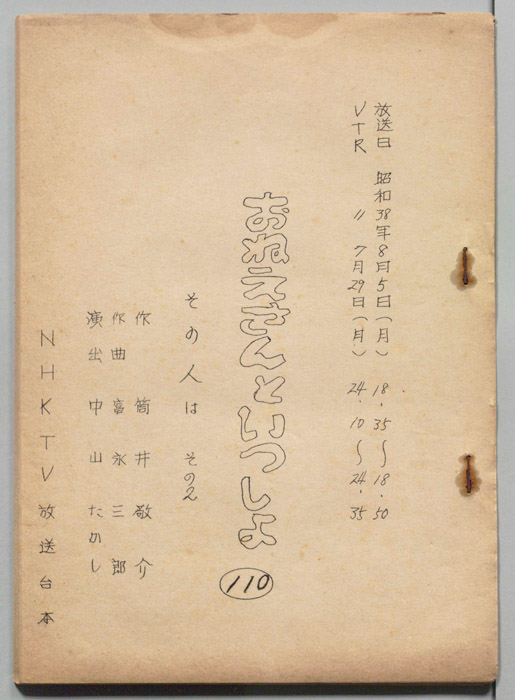 放送日 昭和38年8月5日(月) 18.35〜18.50
VTR 〃 7月29日(月) 24.10〜24.35
おねえさんといっしょ
110
その人は その2
作 筒井敬介
作曲 富永三郎
演出 中山たかし
NHKTV放送台本